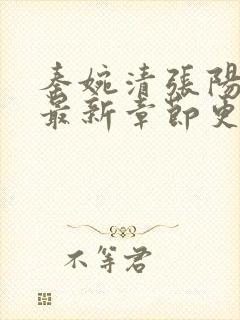 秦婉清張陽
最新章節更
不等君